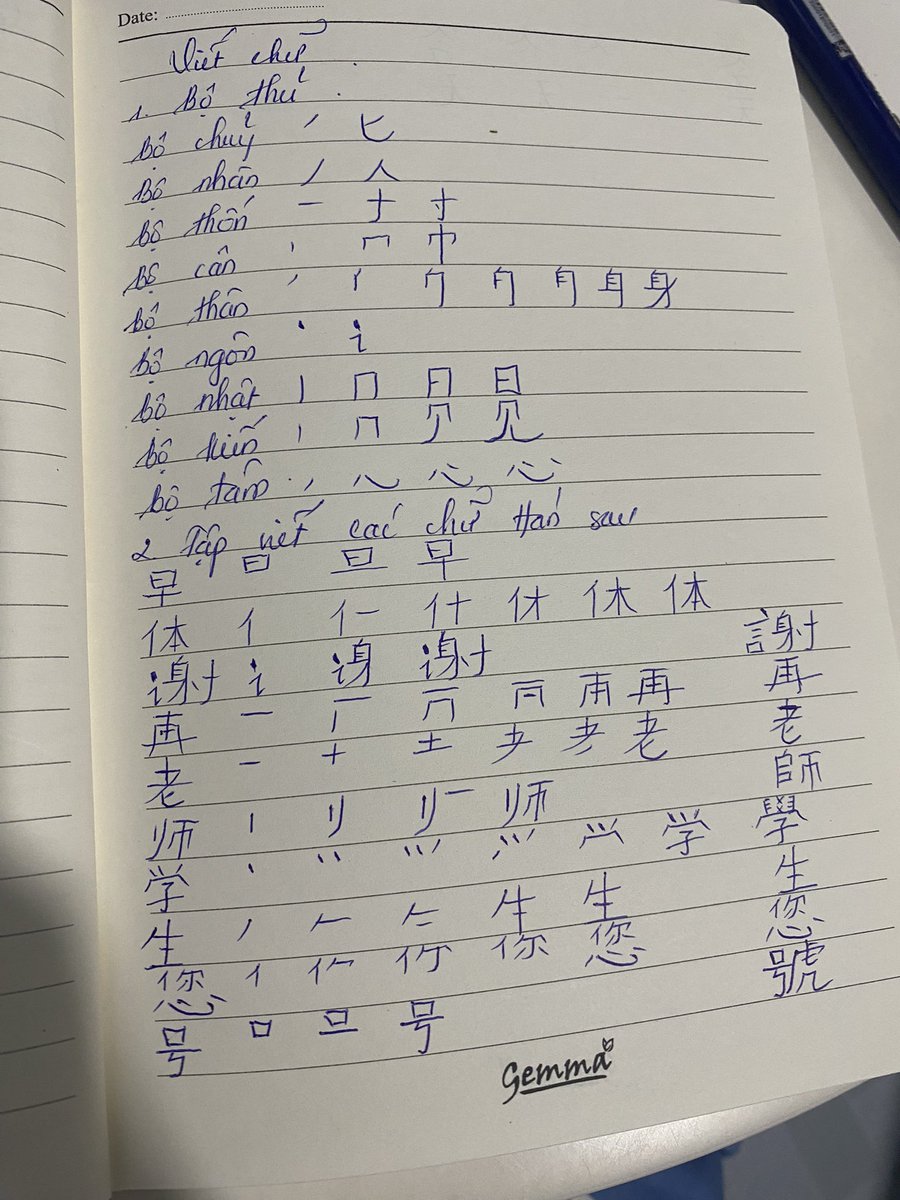 Date:
Viết chữ
1. Bộ thủ
Bộ chuỷ ㇒ 匕
Bộ nhân ㇒ 人
Bộ thốn 一 寸
Bộ cân 丨 冂 巾
Bộ thân ㇒ 身
Bộ ngôn 丶 讠
Bộ nhật 丨 冂 日
Bộ kiến 丨 冂 见
Bộ tâm 丶 心
2. Tập viết các chữ Hán sau
早 日 旦 早
体 亻 什 休 体
谢 讠 谢 謝
再 一 丆 再 再
老 一 十 土 耂 老 老
师 丨 师 師
学 丶 学 學
生 ㇒ 𠂉 生 生
您 亻 你 您 您
号 口 号 號
Gemma